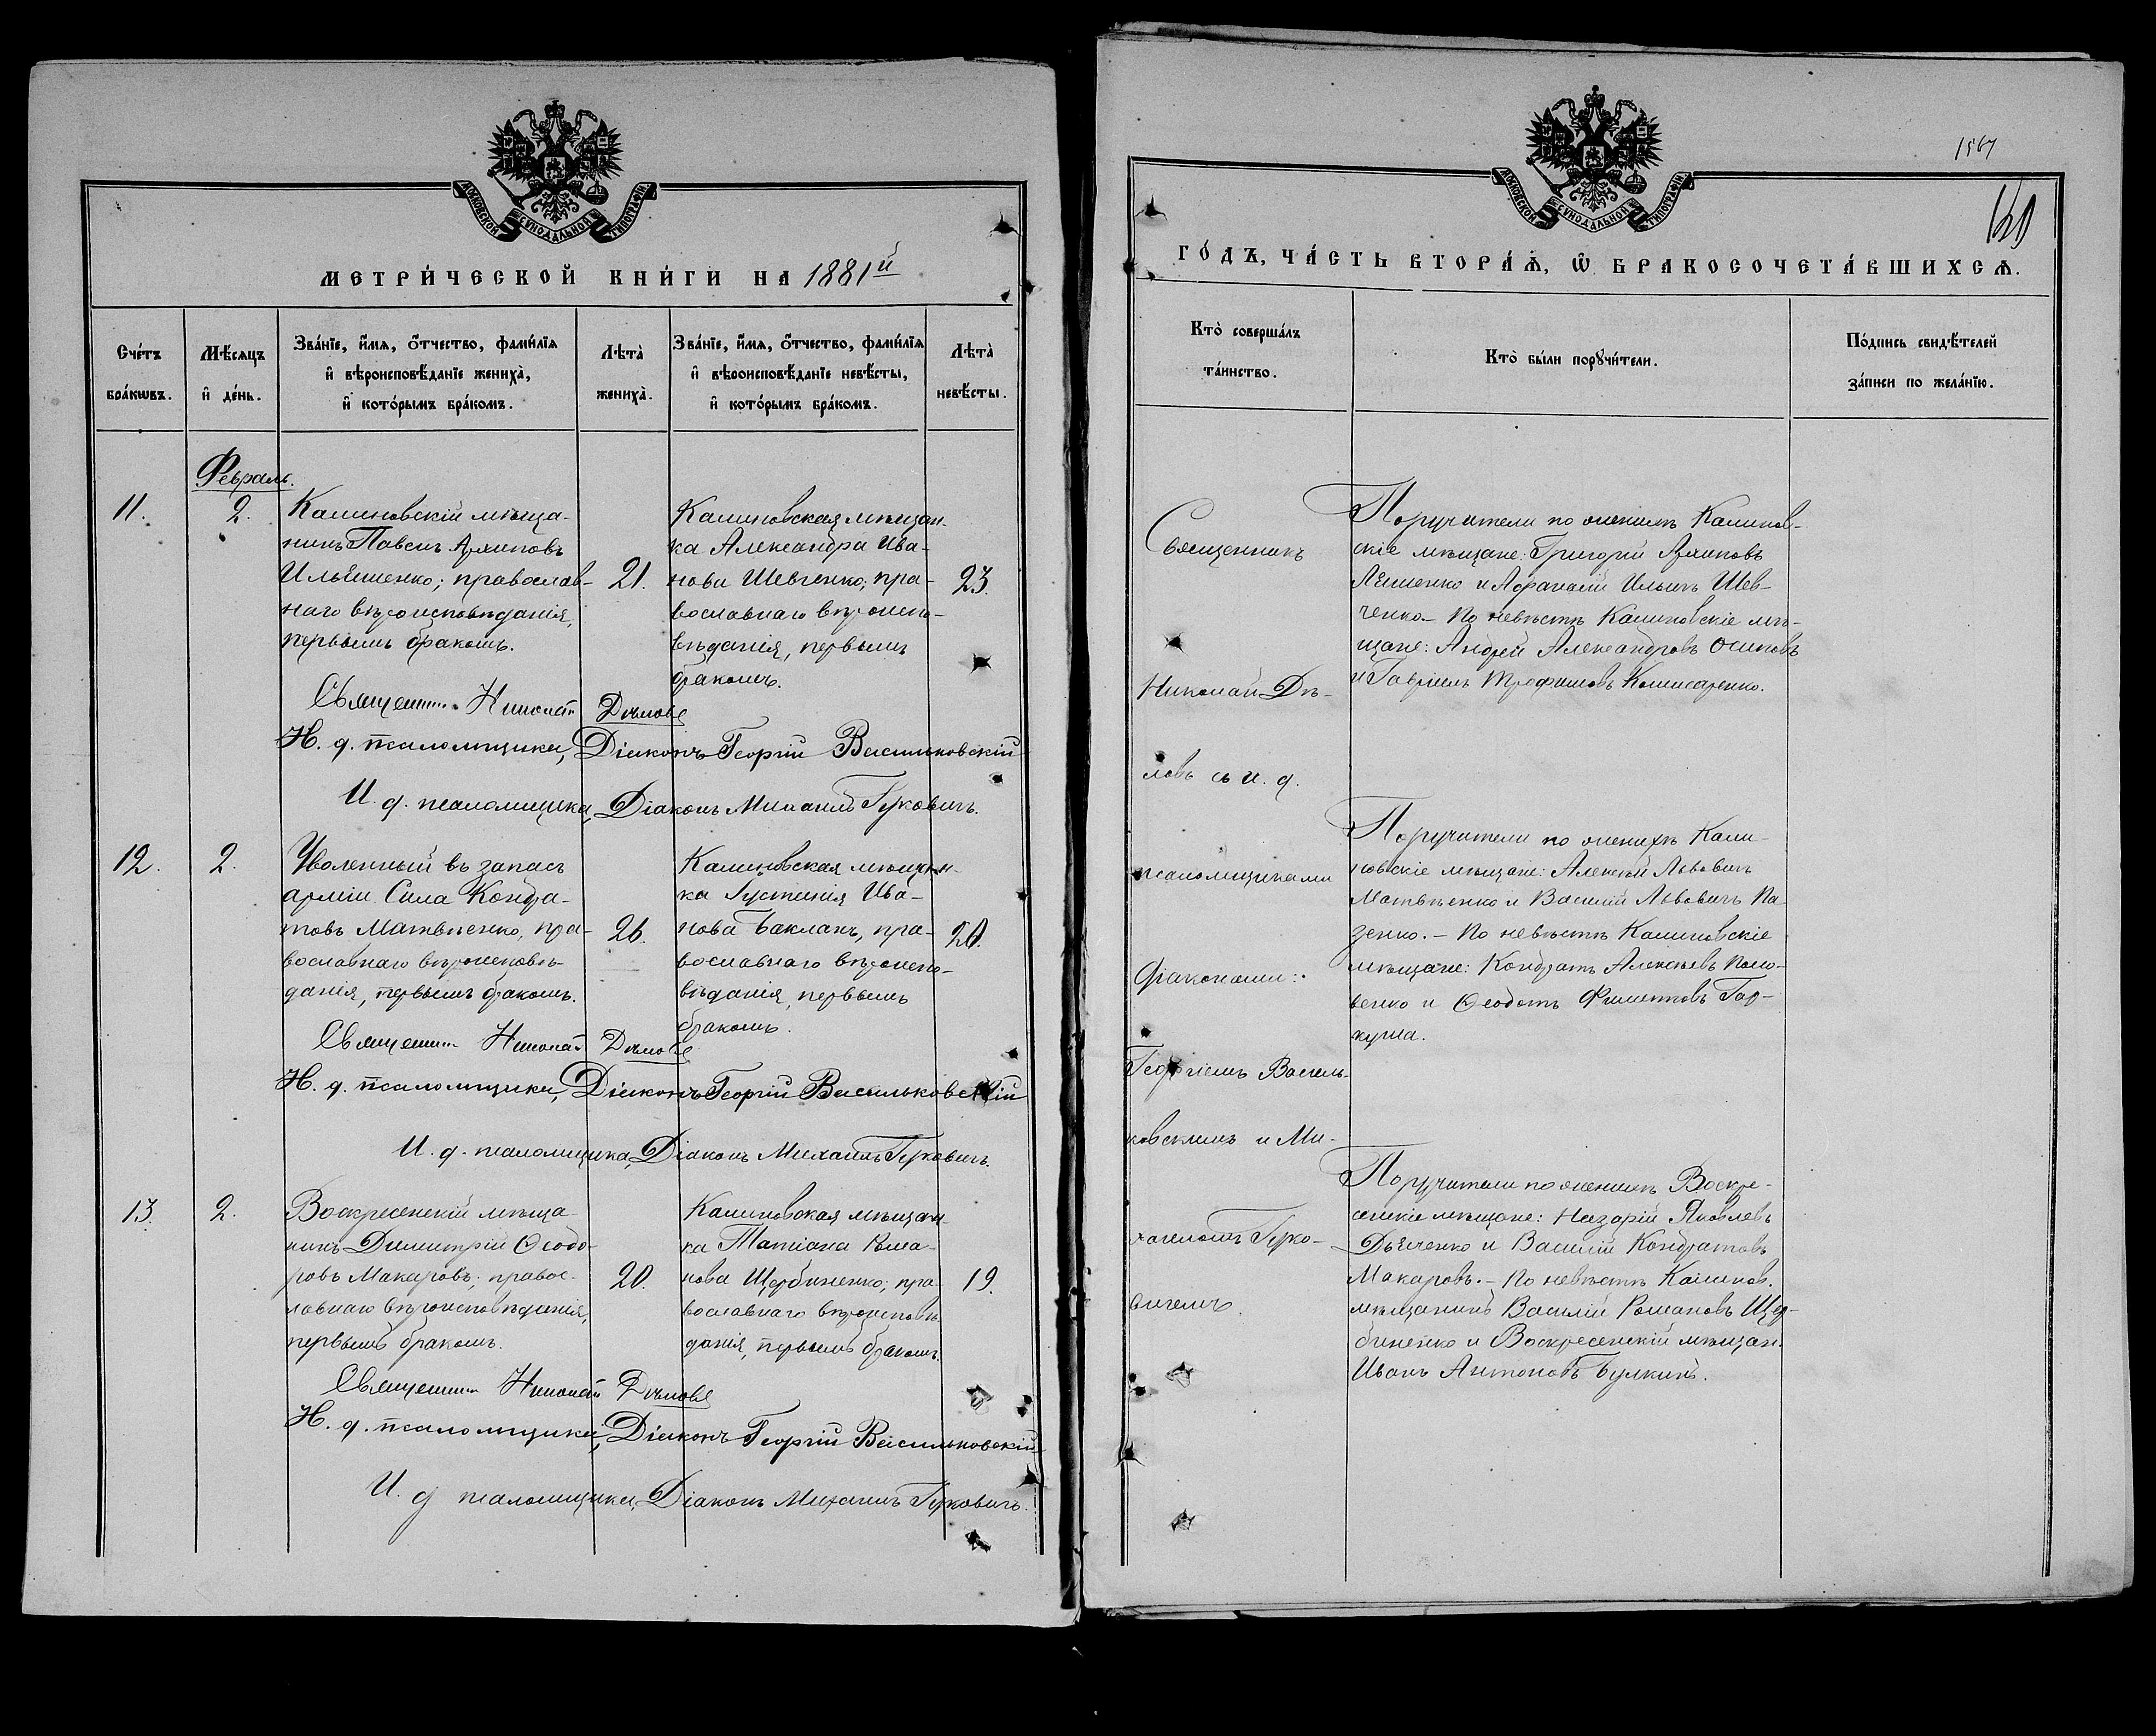 МОСКОВСКОЙ СѴНОДАЛЬНОЙ ТИПОГРАФІИ
МЕТРИ́ЧЕСКОЙ КНИ́ГИ НА 1881й
Сче́тъ бра́кѡвъ.
Мѣ́сяцъ и҆ де́нь.
Зва́нїе, и҆́мя, ѻ҆́тчество, фами́лїя
и҆ вѣроисповѣ́данїе жениха̀,
и҆ кото́рымъ бра́комъ.
Лѣта̀ жениха̀.
Зва́нїе, и҆́мя, ѻ҆́тчество, фами́лїя
и҆ вѣроисповѣ́данїе невѣ́сты,
и҆ кото́рымъ бра́комъ.
Лѣта̀ невѣ́сты.
Февраль.
11.
2.
Калиновскій мѣща-
нинъ Павелъ Архиповъ
Ильяшенко; православ-
наго вѣроисповѣданія,
первымъ бракомъ.
21.
Калиновская мѣщан-
ка Александра Ива-
нова Шевченко; пра-
вославнаго вѣроиспо-
вѣданія, первымъ
бракомъ.
23.
Священникъ Николай Дѣловъ
И. д. псаломщика, Діаконъ Георгій Васильковскій
И. д. псаломщика, Діаконъ Михаилъ Гуковичъ.
12.
2.
Уволенный въ запасъ
арміи Сила Кондра-
товъ Матвѣенко, пра-
вославнаго вѣроисповѣ-
данія, первымъ бракомъ.
26.
Калиновская мѣщан-
ка Іустинія Ива-
нова Бакланъ, пра-
вославнаго вѣроиспо-
вѣданія, первымъ
бракомъ.
20.
Священникъ Николай Дѣловъ
И. д. псаломщика, Діаконъ Георгій Васильковскій
И. д. псаломщика, Діаконъ Михаилъ Гуковичъ.
13.
2.
Воскресенскій мѣща-
нинъ Димитрій Ѳеодо-
ровъ Макаровъ; правос-
лавнаго вѣроисповѣданія,
первымъ бракомъ.
20.
Калиновская мѣщан-
ка Татіана Рома-
нова Щербиненко; пра-
вославнаго вѣроисповѣ-
данія, первымъ бракомъ.
19.
Священникъ Николай Дѣловъ
И. д. псаломщика, Діаконъ Георгій Васильковскій
И. д псаломщика, Діаконъ Михаилъ Гуковичъ.
1567
МОСКОВСКОЙ СѴНОДАЛЬНОЙ ТИПОГРАФІИ
ГО́ДЪ, ЧА́СТЬ ВТОРА́Ѧ, Ѽ БРАКОСОЧЕТА́ВШИХСѦ.
Кто̀ соверша́лъ
та́инство.
Кто̀ бы́ли порꙋчи́тели.
По́дпись свидѣ́телей
за́писи по жела́нїю.
Священникъ
Николай Дѣ-
ловъ съ и. д.
псаломщиками
діаконами:
Георгіемъ Василь-
ковскимъ и Ми-
хаиломъ Гуко-
вичемъ.
Поручители по женихѣ Калинов-
скіе мѣщане: Григорій Архиповъ
Ляшенко и Афанасій Ильинъ Шев-
ченко.- По невѣстѣ Калиновскіе мѣ-
щане: Андрей Александровъ Осиповъ
и Гавріилъ Трофимовъ Комисаренко.
Поручители по женихѣ Кали-
новскіе мѣщане: Алексѣй Львовичъ
Матвѣенко и Василій Львовичъ Ла-
зенко.- По невѣстѣ Калиновскіе
мѣщане: Кондратъ Алексѣевъ
и Ѳеодотъ Филиповъ Гар-
куша.
Поручители по женихѣ Воскре-
сенскіе мѣщане: Назарій Яковлевъ
Дьяченко и Василій Кондратовъ
Макаровъ.- По невѣстѣ Калинов.
мѣщанинъ Василій Романовъ Щер-
биненко и Воскресенскій мѣщан.
Иванъ Антоновъ Булкинъ.